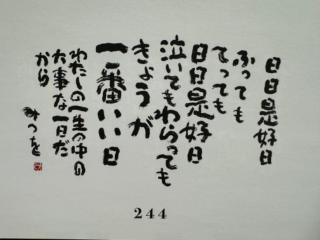 日日是好日
ふっても
てっても
日日是好日
泣いてもわらっても
きょうが
一番いい日
わたしの一生の中の
大事な一日だ
から
みつを
244